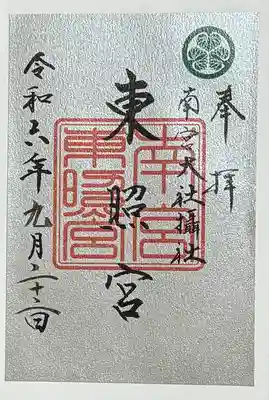 奉拝
南宮大社攝社
東照宮
令和六年九月二十二日
南宮
東照宮